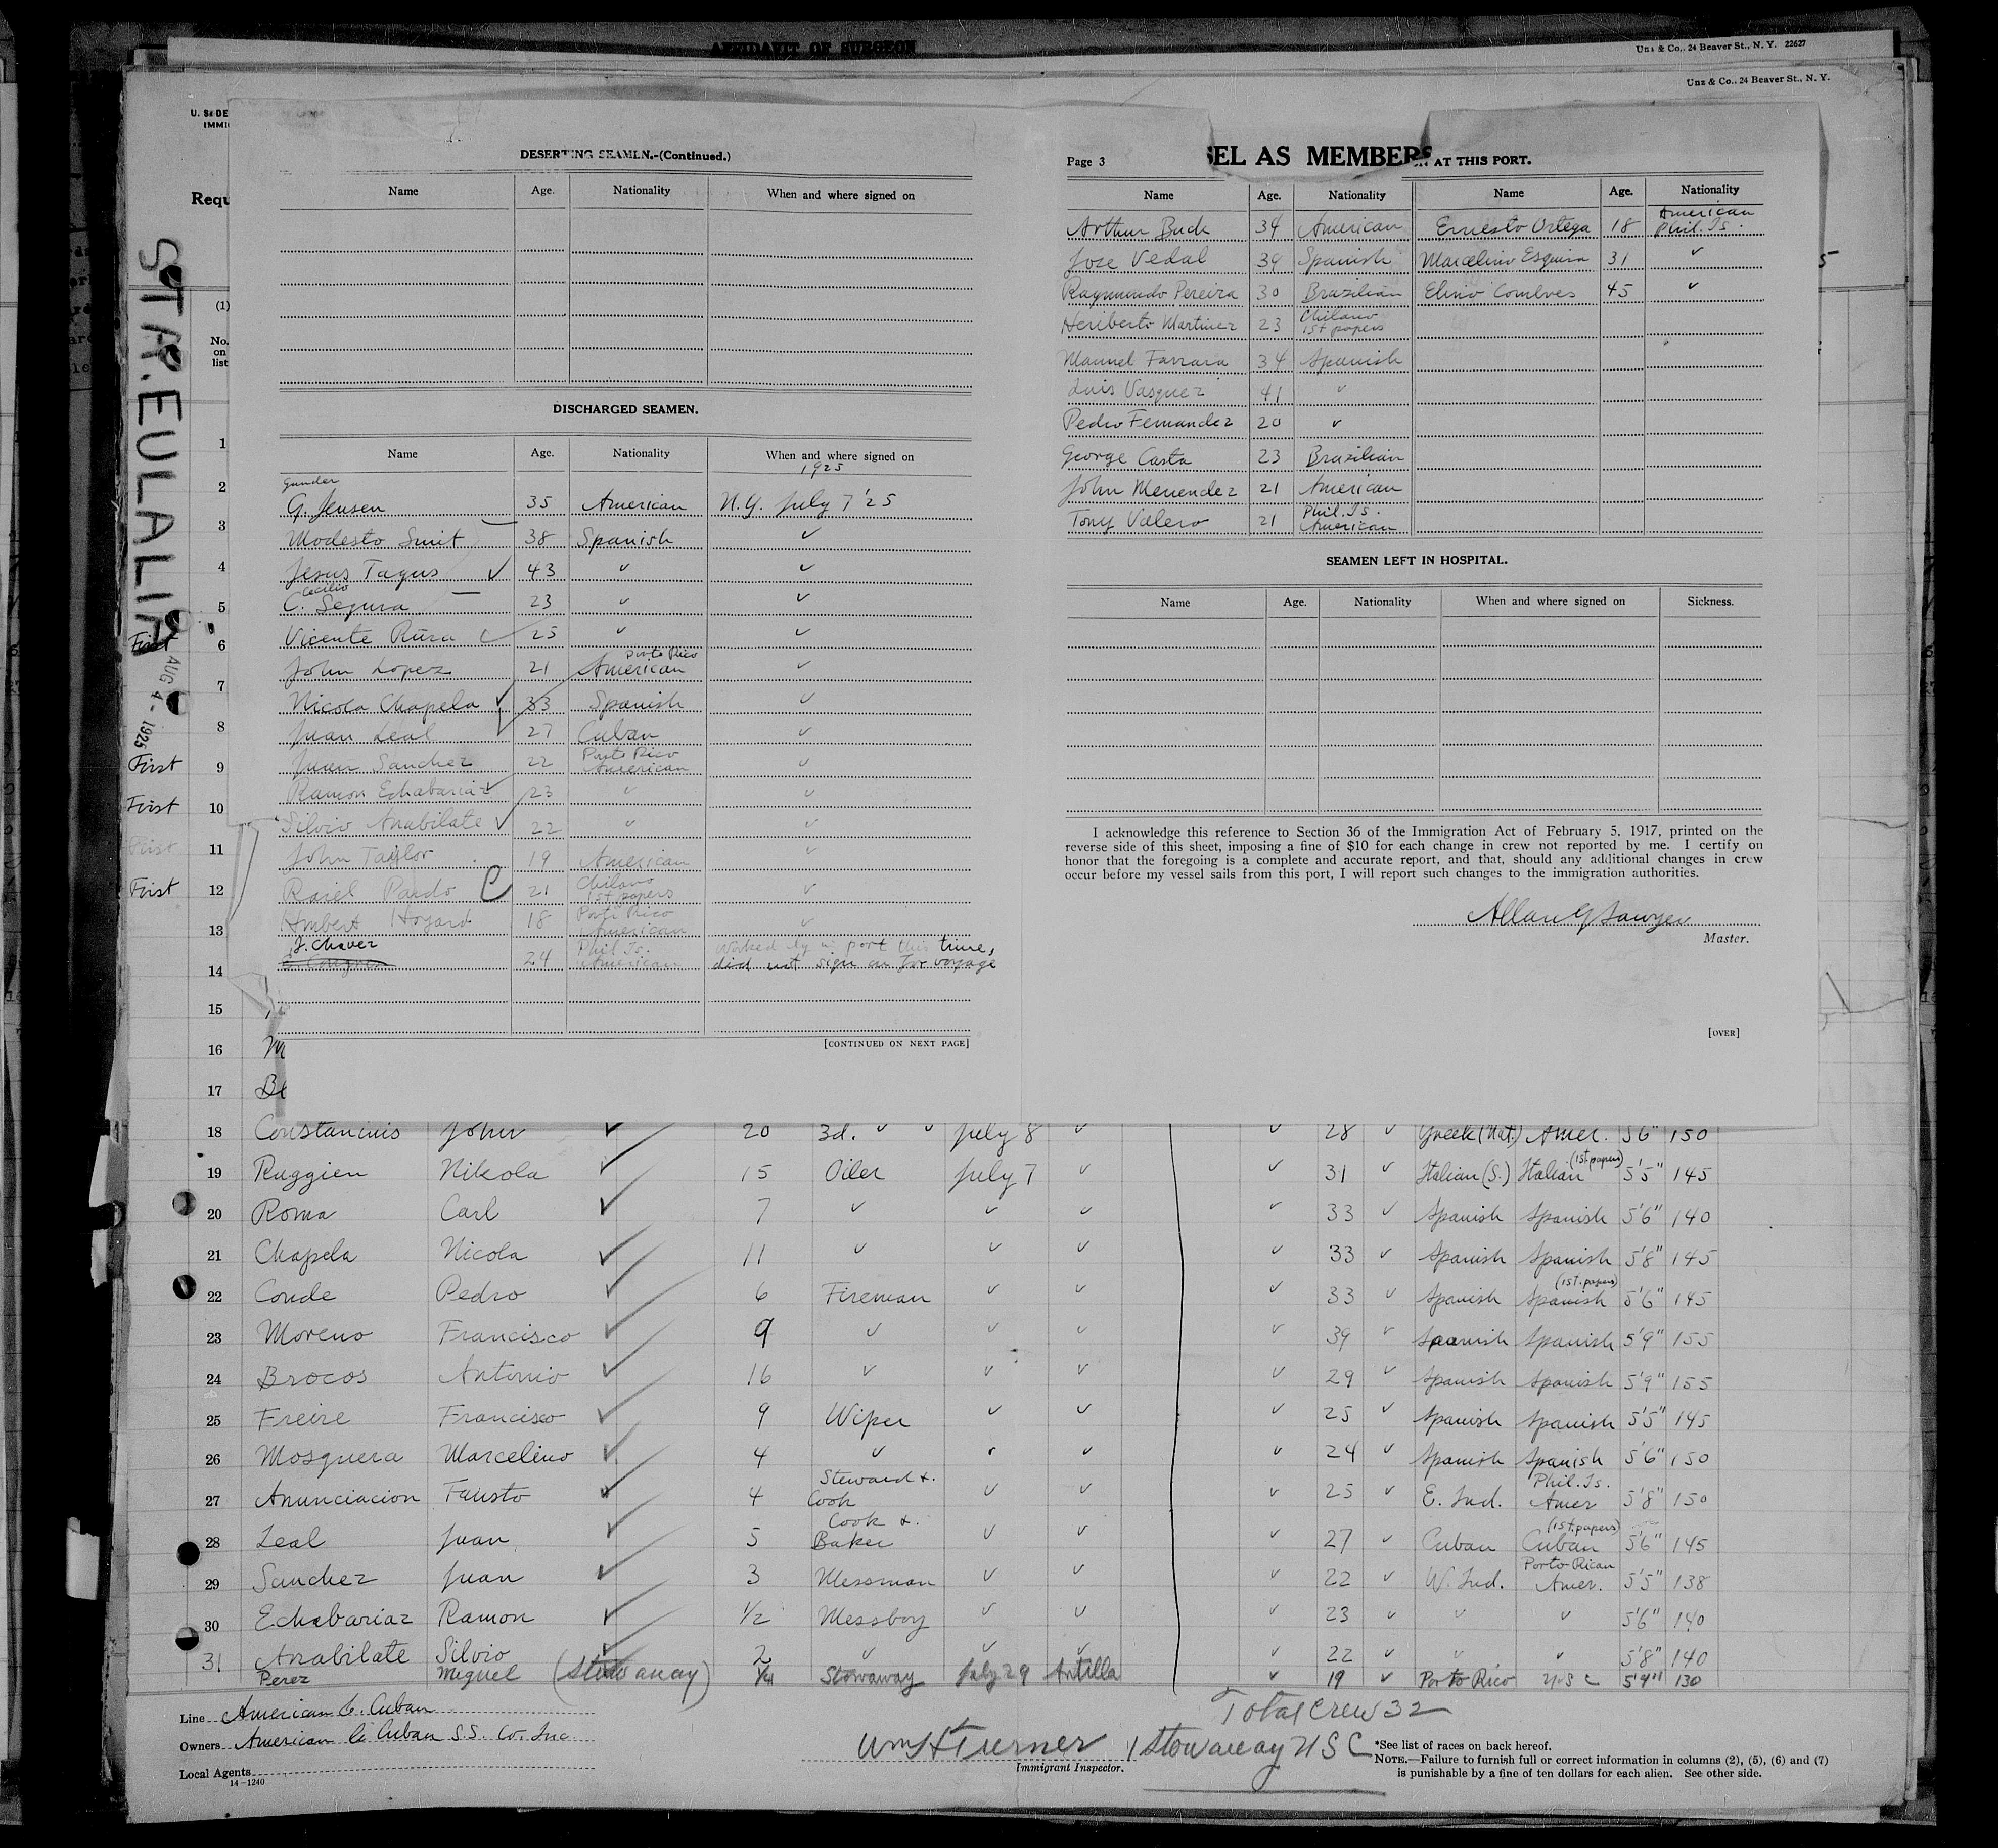 AFFIDAVIT OF SURGEON
Unz & Co., 24 Beaver St., N. Y. 22627
Unz & Co., 24 Beaver St., N. Y.
U. S. DE
IMMI
Requ
(1)
No.
on
list
STR. EULALIA
AUG 4 - 1925
DESERTING SEAMEN.-(Continued.)
Name Age. Nationality When and where signed on
DISCHARGED SEAMEN.
Name Age. Nationality When and where signed on
1925
Gunder
G. Jensen 35 American N.Y. July 7 '25
Modesto Smit 38 Spanish ✓
Jesus Tagus ✓ 43 ✓ ✓
Cecilio
C. Segura 23 ✓ ✓
Vicente Rura 25 ✓ ✓
Porto Rico
John Lopez 21 American ✓
Nicola Chapela ✓ 33 Spanish ✓
Juan Leal 27 Cuban ✓
Porto Rico
Juan Sanchez 22 American ✓
Ramon Echabariaz 23 ✓ ✓
Silvio Anabilate ✓ 22 ✓ ✓
John Taylor 19 American ✓
Chilano
Raiel Pardo 21 1st papers ✓
Porti Rico
Humbert Hoyard 18 American ✓
J. Chaver Phil Is. Worked by in port this time,
24 American did not sign on for voyage
[CONTINUED ON NEXT PAGE]
Page 3 SEL AS MEMBERS AT THIS PORT.
Name Age. Nationality Name Age. Nationality
American
Arthur Buck 34 American Ernesto Ortega 18 Phil. Is.
Jose Vedal 39 Spanish Marcelino Esquira 31 ✓
Raymundo Pereira 30 Brazilian Elino Comlves 45 ✓
Chilano
Heriberto Martinez 23 1st papers
Manuel Farrara 34 Spanish
Luis Vasquez 41 ✓
Pedro Fernandez 20 ✓
George Casta 23 Brazilian
John Menendez 21 American
Phil. Is.
Tony Valero 21 American
SEAMEN LEFT IN HOSPITAL.
Name Age. Nationality When and where signed on Sickness.
I acknowledge this reference to Section 36 of the Immigration Act of February 5, 1917, printed on the
reverse side of this sheet, imposing a fine of $10 for each change in crew not reported by me. I certify on
honor that the foregoing is a complete and accurate report, and that, should any additional changes in crew
occur before my vessel sails from this port, I will report such changes to the immigration authorities.
Allan G Sawyer
Master.
[OVER]
1
2
3
4
5
First 6
7
8
First 9
First 10
First 11
First 12
13
14
15
16 M
17 Be
18 Constancinis John ✓ 20 3d. ✓ ✓ July 8 ✓ ✓ 28 ✓ Greek (Nat.) Amer. 5'6" 150
(1st papers)
19 Ruggien Nikola ✓ 15 Oiler July 7 ✓ ✓ 31 ✓ Italian (S.) Italian 5'5" 145
20 Roma Carl ✓ 7 ✓ ✓ ✓ ✓ 33 ✓ Spanish Spanish 5'6" 140
21 Chapela Nicola ✓ 11 ✓ ✓ ✓ ✓ 33 Spanish Spanish 5'8" 145
(1st papers)
22 Conde Pedro ✓ 6 Fireman ✓ ✓ ✓ 33 ✓ Spanish Spanish 5'6" 145
23 Moreno Francisco ✓ 9 ✓ ✓ ✓ ✓ 39 ✓ Spanish Spanish 5'9" 155
24 Brocos Antonio ✓ 16 ✓ ✓ ✓ ✓ 29 ✓ Spanish Spanish 5'9" 155
25 Freire Francisco ✓ 9 Wiper ✓ ✓ ✓ 25 ✓ Spanish Spanish 5'5" 145
26 Mosquera Marcelino ✓ 4 ✓ ✓ ✓ ✓ 24 ✓ Spanish Spanish 5'6" 150
Steward & Phil. Is.
27 Anunciacion Fausto ✓ 4 Cook ✓ ✓ ✓ 25 ✓ E. Ind. Amer 5'8" 150
Cook & (1st papers)
28 Leal Juan ✓ 5 Baker ✓ ✓ ✓ 27 ✓ Cuban Cuban 5'6" 145
Porto Rican
29 Sanchez Juan ✓ 3 Messman ✓ ✓ ✓ 22 ✓ W. Ind. Amer. 5'5" 138
30 Echabariaz Ramon ✓ 1/2 Messboy ✓ ✓ ✓ 23 ✓ ✓ ✓ 5'6" 140
31 Anabilate Silvio ✓ 2 ✓ ✓ ✓ ✓ 22 ✓ ✓ ✓ 5'8" 140
Perez Miguel (Stowaway) Stowaway July 29 Antilla ✓ 19 ✓ Porto Rico USC 5'9" 130
Total Crew 32
Line American & Cuban
Owners American & Cuban S.S. Co. Inc
Local Agents
14-1240
Wm H Turner 1 Stowaway USC
Immigrant Inspector.
*See list of races on back hereof.
NOTE.—Failure to furnish full or correct information in columns (2), (5), (6) and (7)
is punishable by a fine of ten dollars for each alien. See other side.